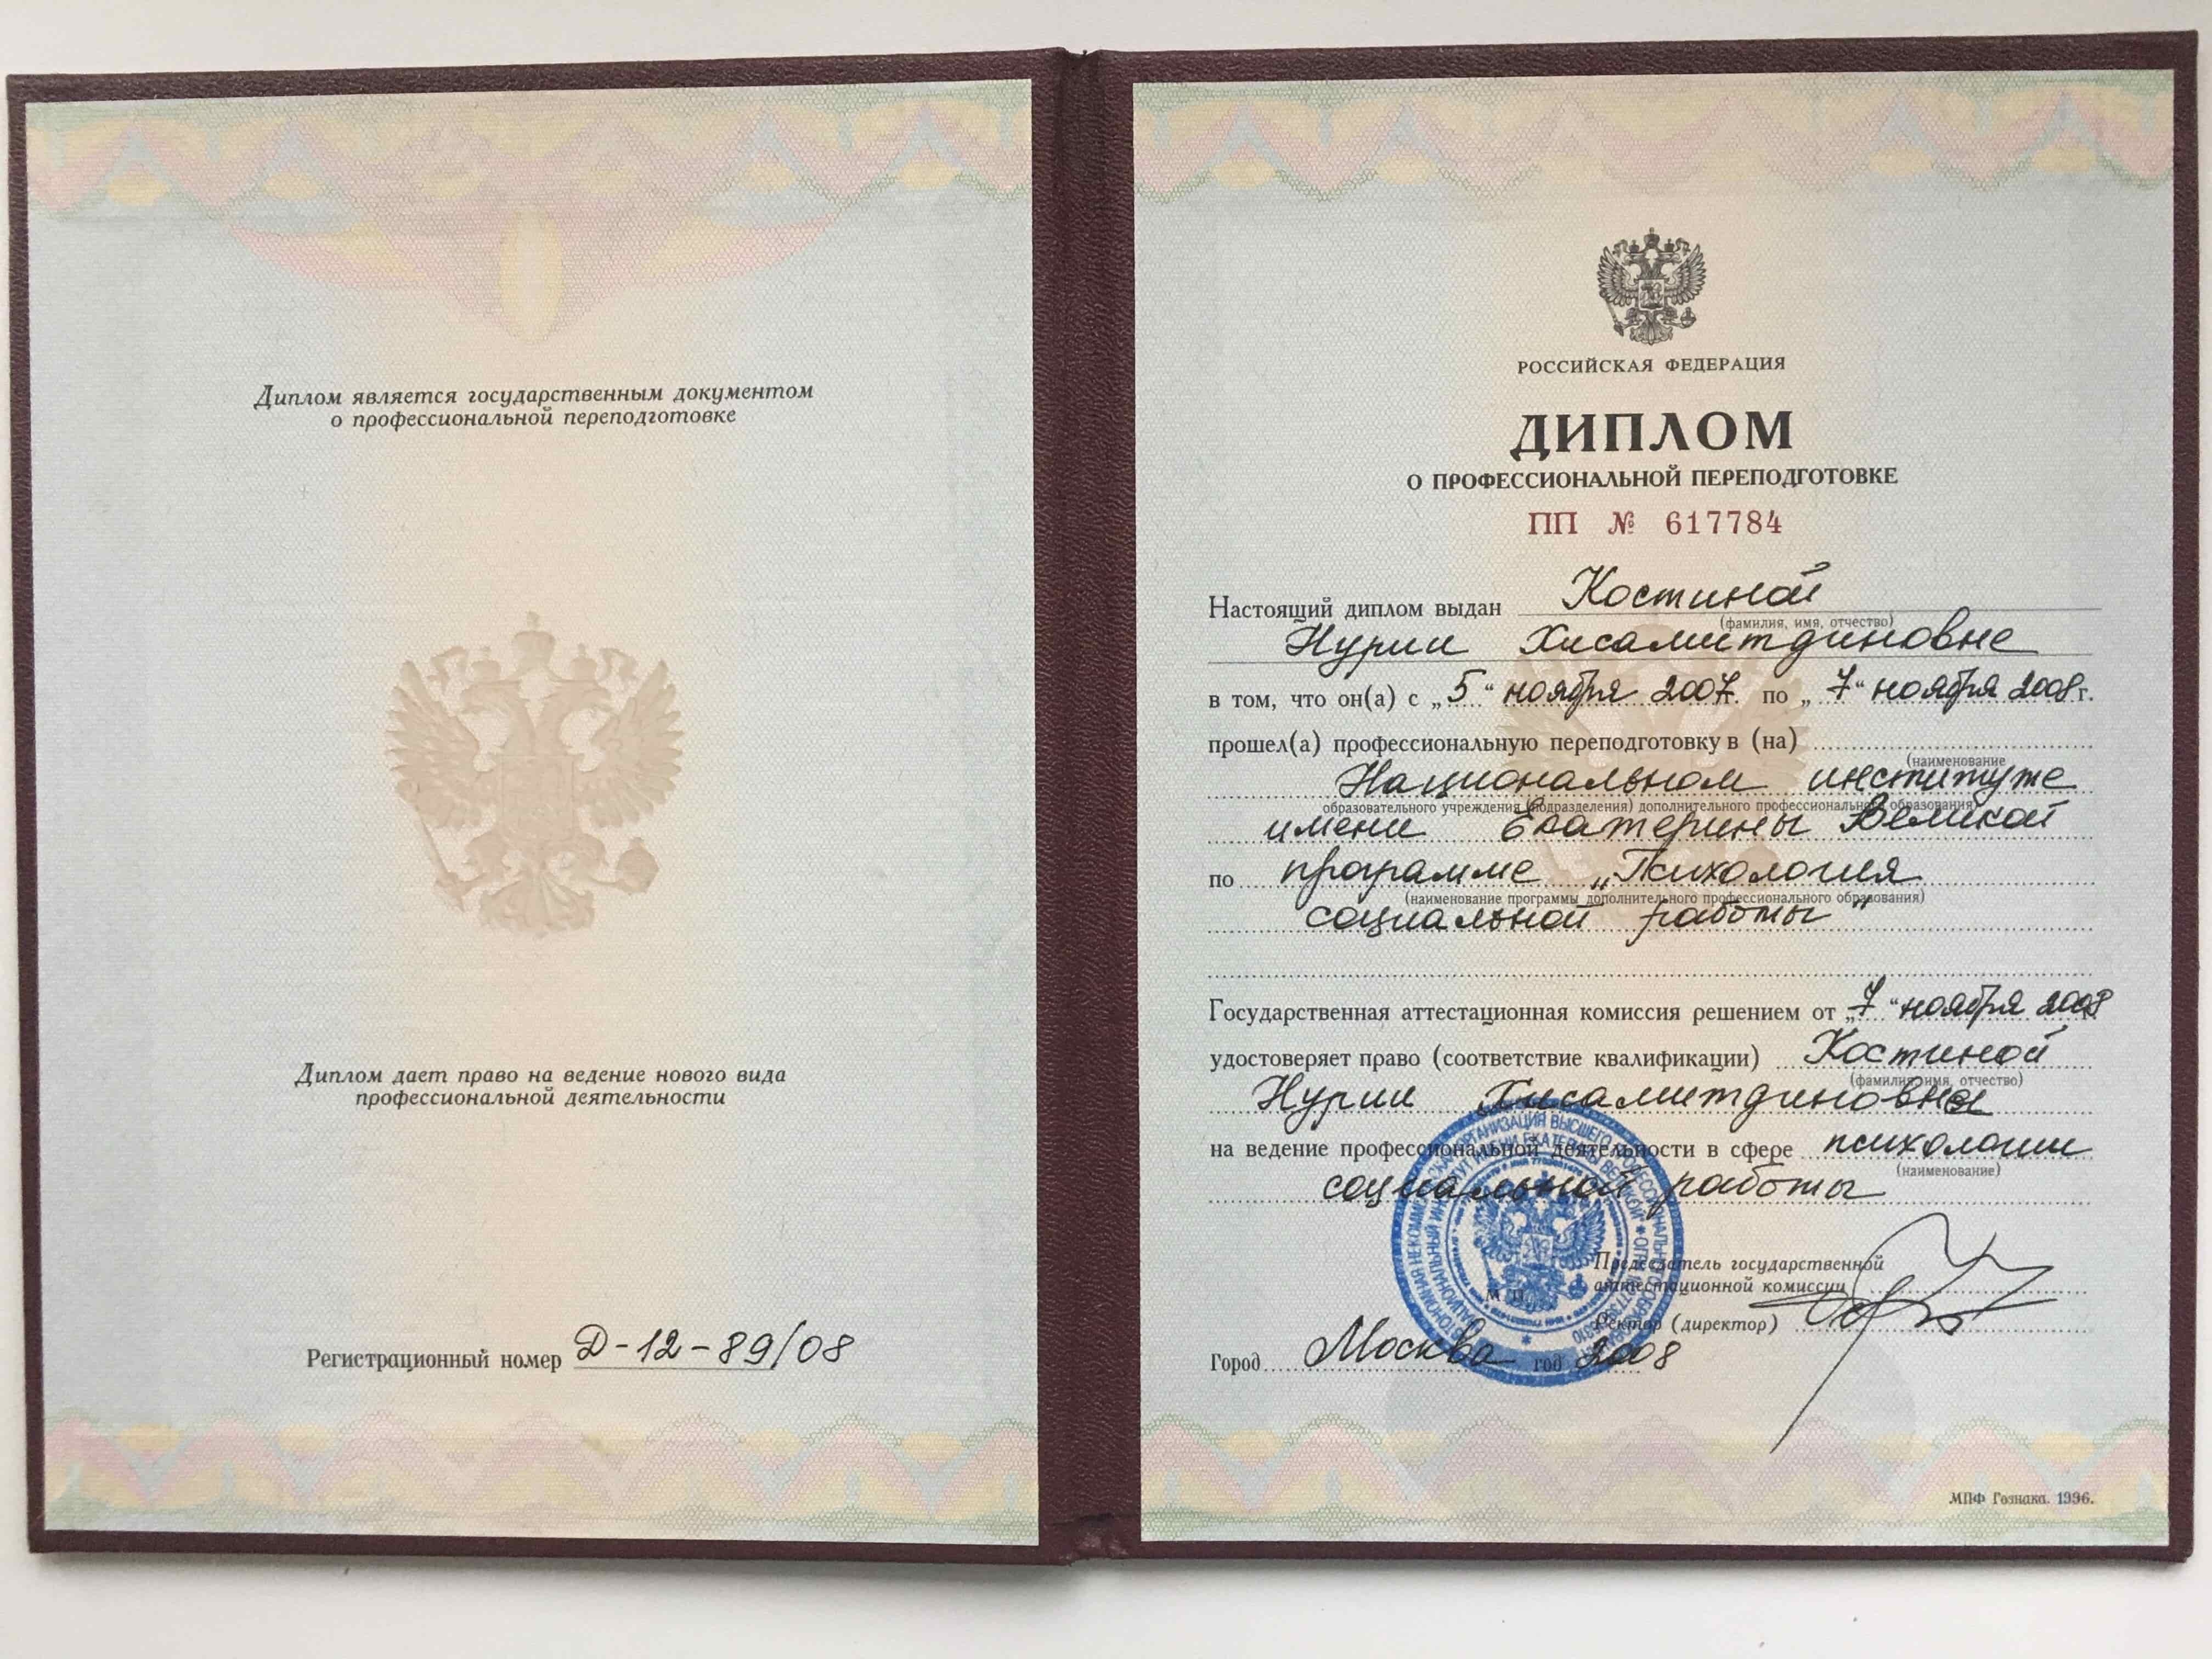 Диплом является государственным документом
о профессиональной переподготовке
Диплом дает право на ведение нового вида
профессиональной деятельности
Регистрационный номер Д-12-89/08
РОССИЙСКАЯ ФЕДЕРАЦИЯ
ДИПЛОМ
О ПРОФЕССИОНАЛЬНОЙ ПЕРЕПОДГОТОВКЕ
ПП № 617784
Настоящий диплом выдан Костиной
(фамилия, имя, отчество)
Нурии Хисамитдиновне
в том, что он(а) с „5" ноября 2007. по „7" ноября 2008г.
прошел(а) профессиональную переподготовку в (на)
(наименование
Национальном институте
образовательного учреждения (подразделения) дополнительного профессионального образования)
имени Екатерины Великой
по программе „Психология
(наименование программы дополнительного профессионального образования)
социальной работы"
Государственная аттестационная комиссия решением от „7" ноября 2008
удостоверяет право (соответствие квалификации) Костиной
(фамилия, имя, отчество)
Нурии Хисамитдиновны
на ведение профессиональной деятельности в сфере психологии
(наименование)
социальной работы
Председатель государственной
аттестационной комиссии
М.П.
Ректор (директор)
Город Москва год 2008
МПФ Гознака. 1996.